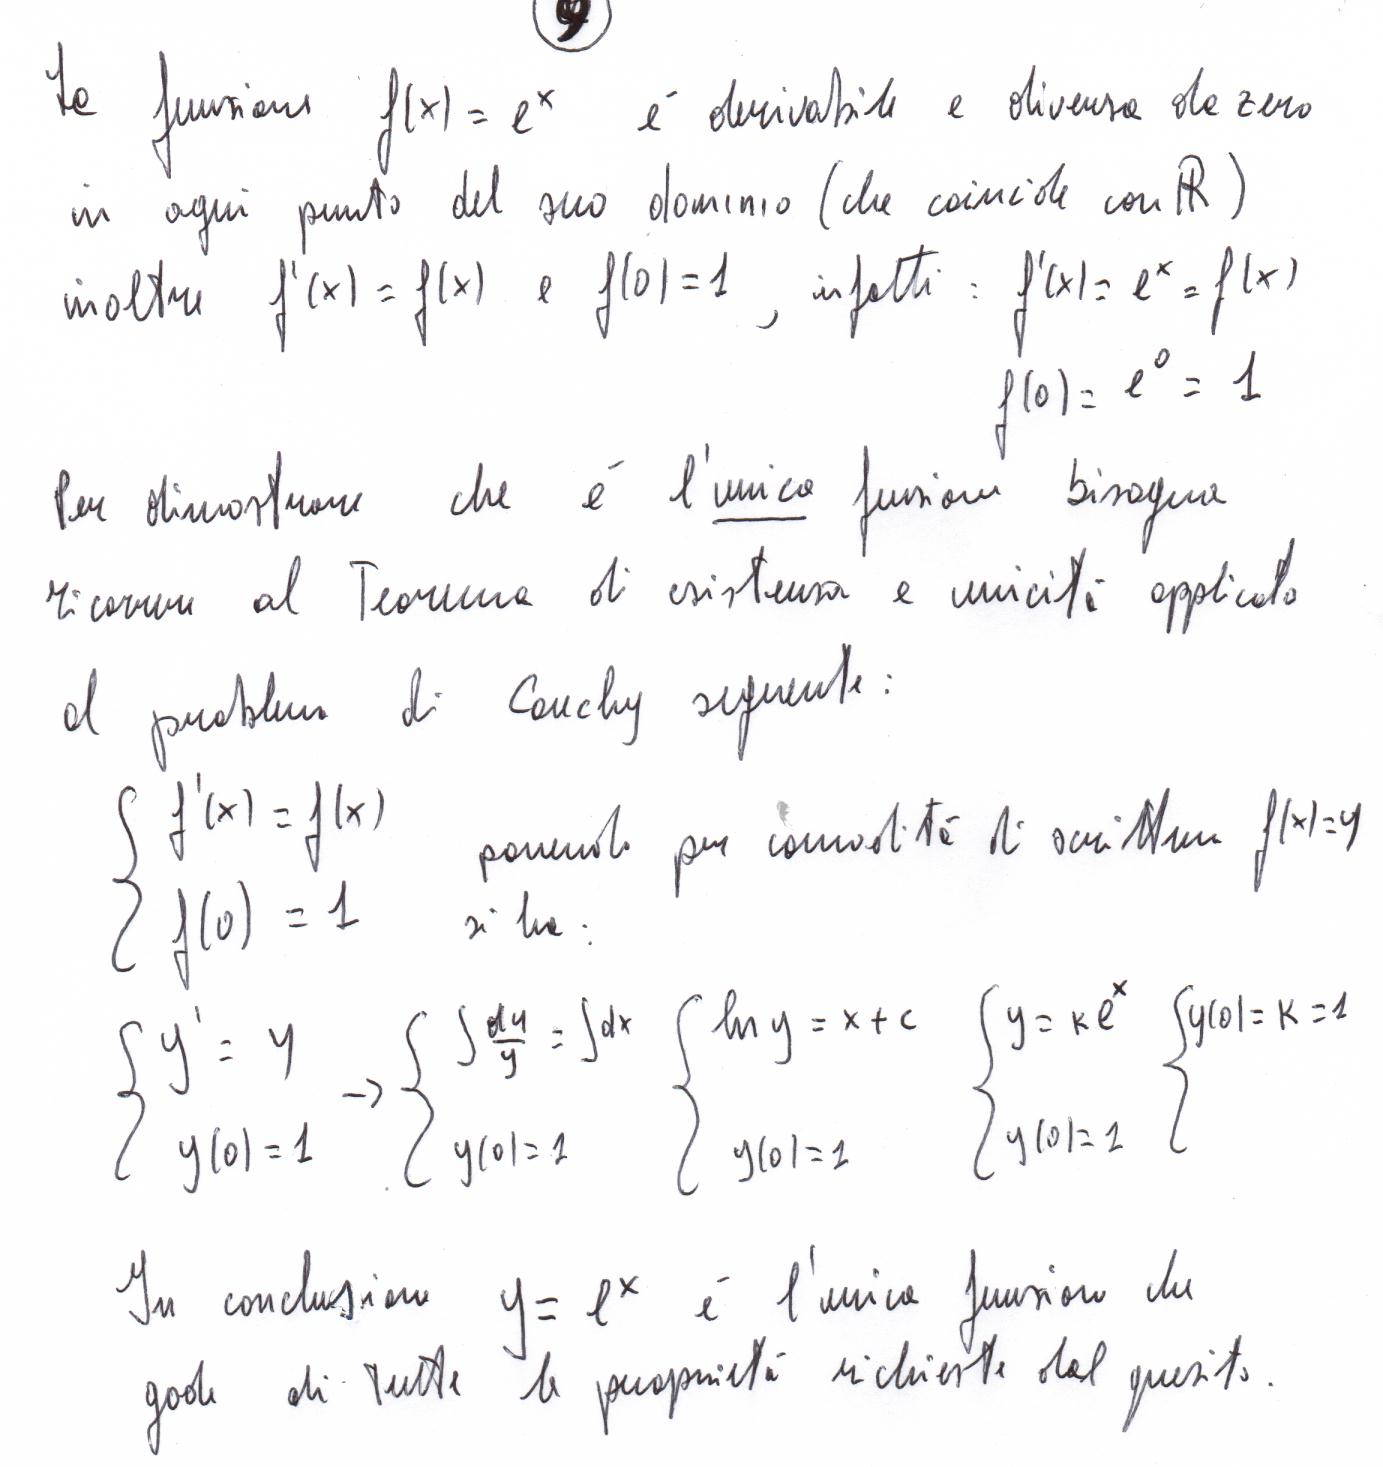 9
La funzione f(x) = e^x é derivabile e diversa da zero
in ogni punto del suo dominio (che coincide con ℝ)
inoltre f'(x) = f(x) e f(0) = 1, infatti: f'(x) = e^x = f(x)
f(0) = e^0 = 1
Per dimostrare che é l'unica funzione bisogna
ricorrere al Teorema di esistenza e unicitá applicato
al problema di Cauchy seguente:
{ f'(x) = f(x) ponendo per comoditá di scrittura f(x)=y
{ f(0) = 1 si ha:
{ y' = y → { ∫ dy/y = ∫ dx { ln y = x + c { y = k e^x { y(0) = k = 1
{ y(0) = 1 { y(0) = 1 { y(0) = 1 { y(0) = 1
In conclusione y = e^x é l'unica funzione che
gode di tutte le proprietá richieste dal quesito.